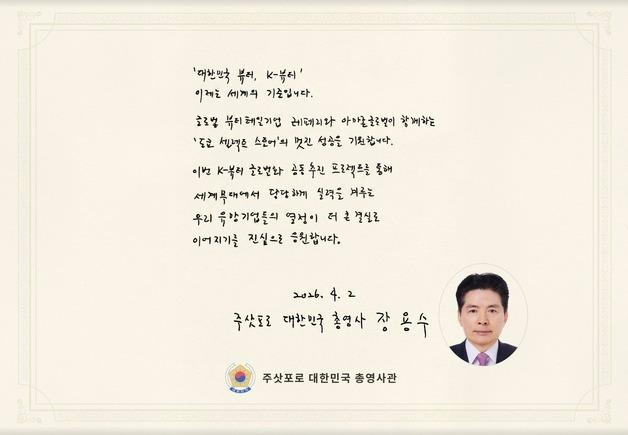 '대한민국 뷰티, K-뷰티'
이제는 세계의 기준입니다.
글로벌 뷰티체인기업 레페리와 아이홀글로벌이 함께하는
'도쿄 셀렉트 스토어'의 멋진 성공을 기원합니다.
이번 K-뷰티 글로벌화 공동추진 프로젝트를 통해
세계무대에서 당당하게 실력을 겨루는
우리 유망기업들의 열정이 더 큰 결실로
이어지기를 진심으로 응원합니다.
2026. 4. 2
주삿포로 대한민국 총영사 장 용 수
주삿포로 대한민국 총영사관